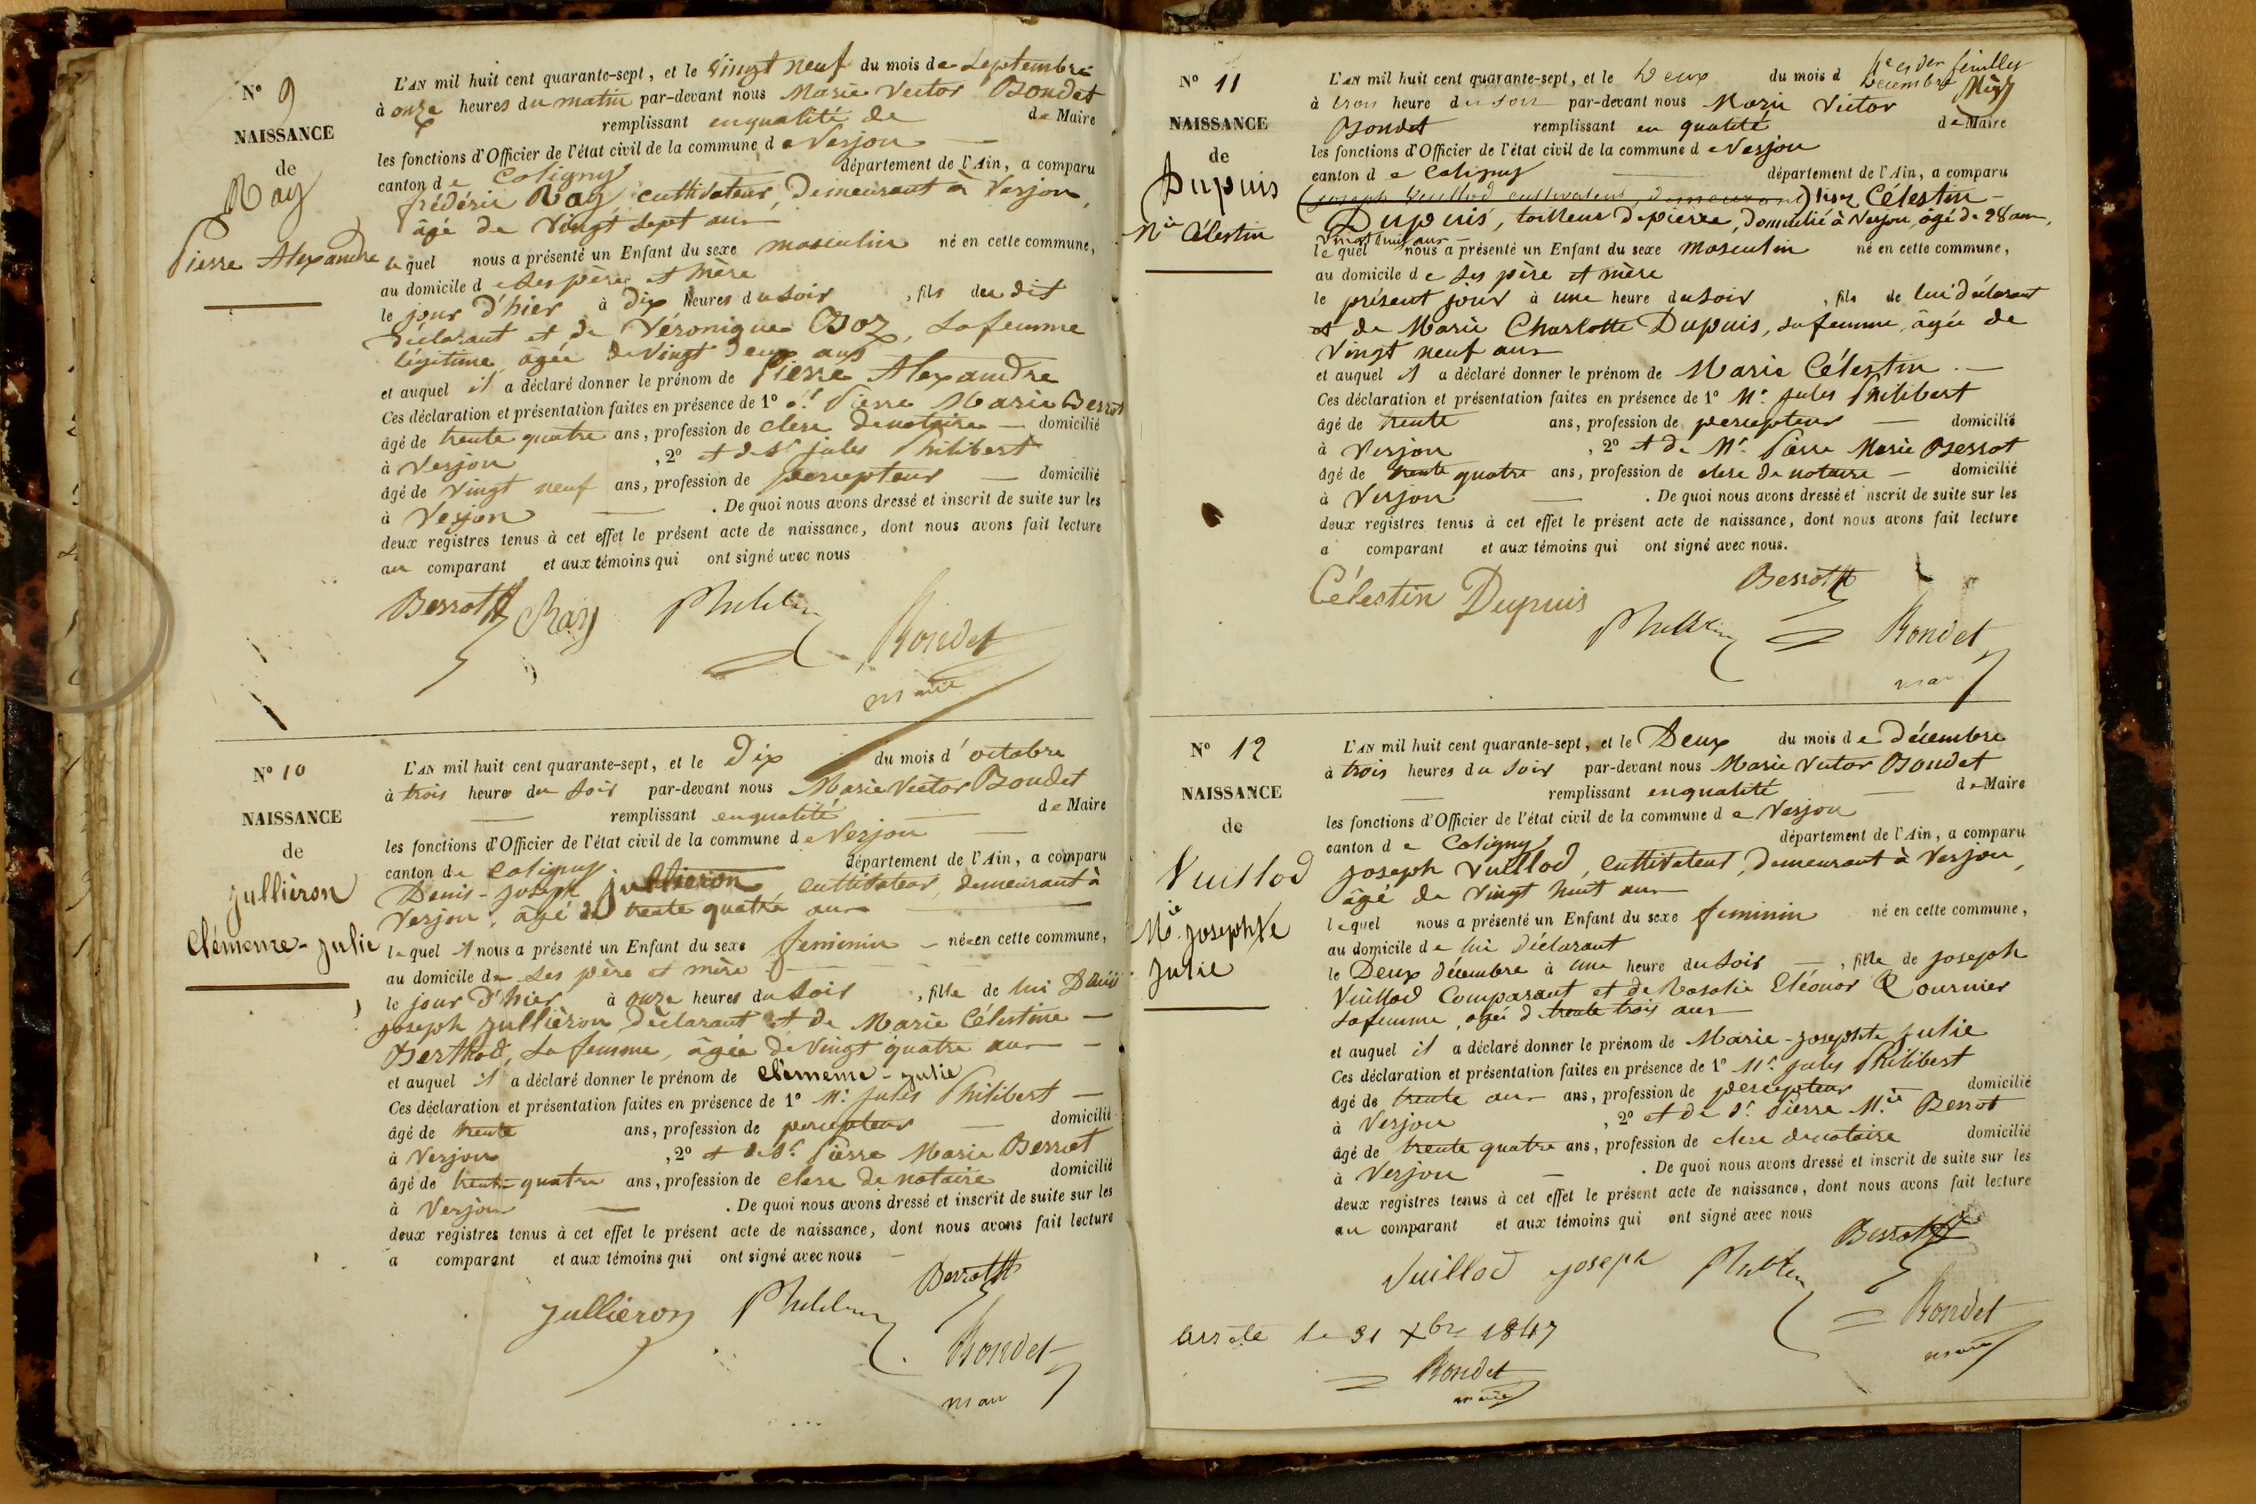 Nº 9
NAISSANCE
de
Ray
Pierre Alexandre
L'AN mil huit cent quarante-sept, et le vingt neuf du mois de Septembre
à onze heures du matin par-devant nous Marie Victor Bondet
remplissant enqualité de de Maire
les fonctions d'Officier de l'état civil de la commune de Verjon
canton de Coligny département de l'Ain, a comparu
frédéric Ray, cultivateur, Demeurant à Verjon,
âgé de Vingt sept ans
lequel nous a présenté un Enfant du sexe masculin né en cette commune,
au domicile de ses père et mère
le jour d'hier à dix heures du soir, fils du dit
Déclarant et de Véronique Boz, sa femme
légitime, âgée de vingt deux ans
et auquel il a déclaré donner le prénom de Pierre Alexandre
Ces déclaration et présentation faites en présence de 1º Sr Pierre Marie Berrot
âgé de trente quatre ans, profession de clerc de notaire domicilié
à Verjon, 2º et de Sr jules Philibert
âgé de vingt neuf ans, profession de percepteur domicilié
à Verjon. De quoi nous avons dressé et inscrit de suite sur les
deux registres tenus à cet effet le présent acte de naissance, dont nous avons fait lecture
au comparant et aux témoins qui ont signé avec nous
Berrot Ray Philibert
Bondet
maire
Nº 10
NAISSANCE
de
jullièron
Clémence-julie
L'AN mil huit cent quarante-sept, et le Dix du mois d'octobre
à trois heures du soir par-devant nous Marie Victor Bondet
remplissant enqualité de Maire
les fonctions d'Officier de l'état civil de la commune de Verjon
canton de Coligny département de l'Ain, a comparu
Denis-joseph jullièron, cultivateur, demeurant à
Verjon, âgé de trente quatre ans
lequel il nous a présenté un Enfant du sexe feminin née en cette commune,
au domicile de ses père et mère
le jour d'hier à onze heures du soir, fille de lui Denis
joseph jullièron déclarant et de Marie Célestine
Berthod, sa femme, âgée de vingt quatre ans
et auquel il a déclaré donner le prénom de Clémence-julie
Ces déclaration et présentation faites en présence de 1º Mr jules Philibert
âgé de trente ans, profession de percepteur domicilié
à Verjon, 2º et de Sr Pierre Marie Berrot
âgé de trente quatre ans, profession de clerc de notaire domicilié
à Verjon. De quoi nous avons dressé et inscrit de suite sur les
deux registres tenus à cet effet le présent acte de naissance, dont nous avons fait lecture
a comparant et aux témoins qui ont signé avec nous
Berrot
jullieron Philibert
Bondet
maire
feuillet
Nº 11
NAISSANCE
de
Dupuis
Mie Célestin
L'AN mil huit cent quarante-sept, et le Deux du mois d Decembre
à trois heure du soir par-devant nous Marie Victor
Bondet remplissant en qualité de Maire
les fonctions d'Officier de l'état civil de la commune de Verjon
canton de Coligny département de l'Ain, a comparu
(joseph Vuillod cultivateur, demeurant) lisez Célestin
Dupuis, tailleur de pierre, domicilié à Verjon, âgé de 28 ans,
vingt huit ans
lequel nous a présenté un Enfant du sexe masculin né en cette commune,
au domicile de ses père et mère
le présent jour à une heure du soir, fils de lui déclarant
et de Marie Charlotte Dupuis, sa femme, âgée de
Vingt neuf ans
et auquel il a déclaré donner le prénom de Marie Célestin
Ces déclaration et présentation faites en présence de 1º Mr jules Philibert
âgé de trente ans, profession de percepteur domicilié
à Verjon, 2º et de Mr Pierre Marie Berrot
âgé de trente quatre ans, profession de clerc de notaire domicilié
à Verjon. De quoi nous avons dressé et inscrit de suite sur les
deux registres tenus à cet effet le présent acte de naissance, dont nous avons fait lecture
a comparant et aux témoins qui ont signé avec nous.
Célestin Dupuis Berrot
Philibert Bondet
maire
Nº 12
NAISSANCE
de
Vuillod
Mie josephte
julie
L'AN mil huit cent quarante-sept, et le Deux du mois de Décembre
à trois heures du soir par-devant nous Marie Victor Bondet
remplissant enqualité de Maire
les fonctions d'Officier de l'état civil de la commune de Verjon
canton de Coligny département de l'Ain, a comparu
joseph Vuillod, cultivateur, demeurant à Verjon,
âgé de vingt huit ans
lequel nous a présenté un Enfant du sexe feminin né en cette commune,
au domicile de lui déclarant
le Deux décembre à une heure du soir, fille de joseph
Vuillod Comparant et de Rosalie Eléonor Cournier
sa femme, agée de trente trois ans
et auquel il a déclaré donner le prénom de Marie-josephte julie
Ces déclaration et présentation faites en présence de 1º Mr jules Philibert
âgé de trente ans ans, profession de percepteur domicilié
à Verjon, 2º et de Sr Pierre Mie Berrot
âgé de trente quatre ans, profession de clerc de notaire domicilié
à Verjon. De quoi nous avons dressé et inscrit de suite sur les
deux registres tenus à cet effet le présent acte de naissance, dont nous avons fait lecture
au comparant et aux témoins qui ont signé avec nous
Berrot
Vuillod joseph Philibert
Bondet
maire
Arrêté le 31 Xbre 1847
Bondet
maire